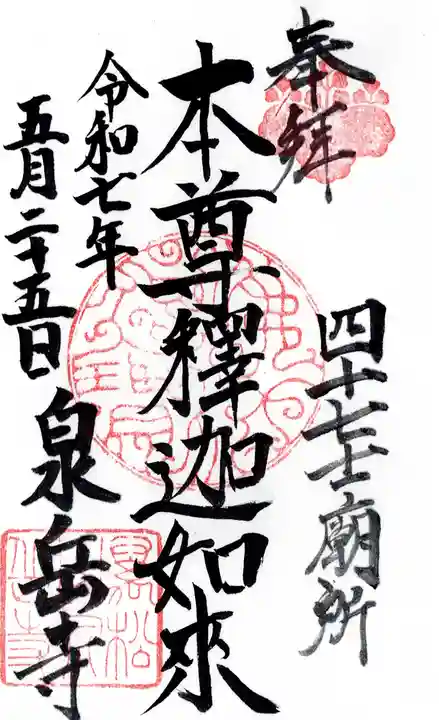 奉拝
四十七士廟所
本尊釋迦如來
令和七年
五月二十五日
泉岳寺